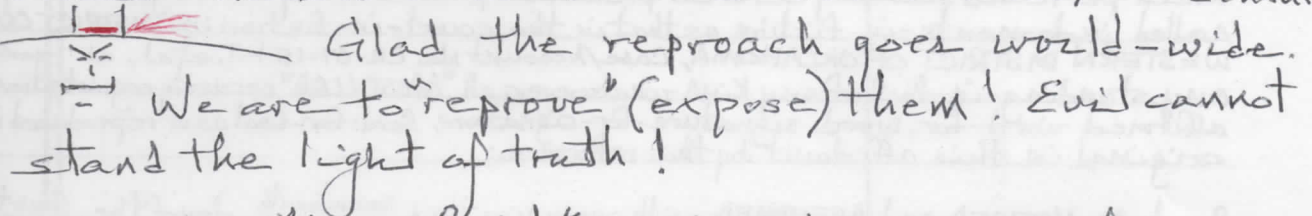 Glad the reproach goes world-wide.
"We are to reprove" (expose) "them". Evil cannot
stand the light of truth!